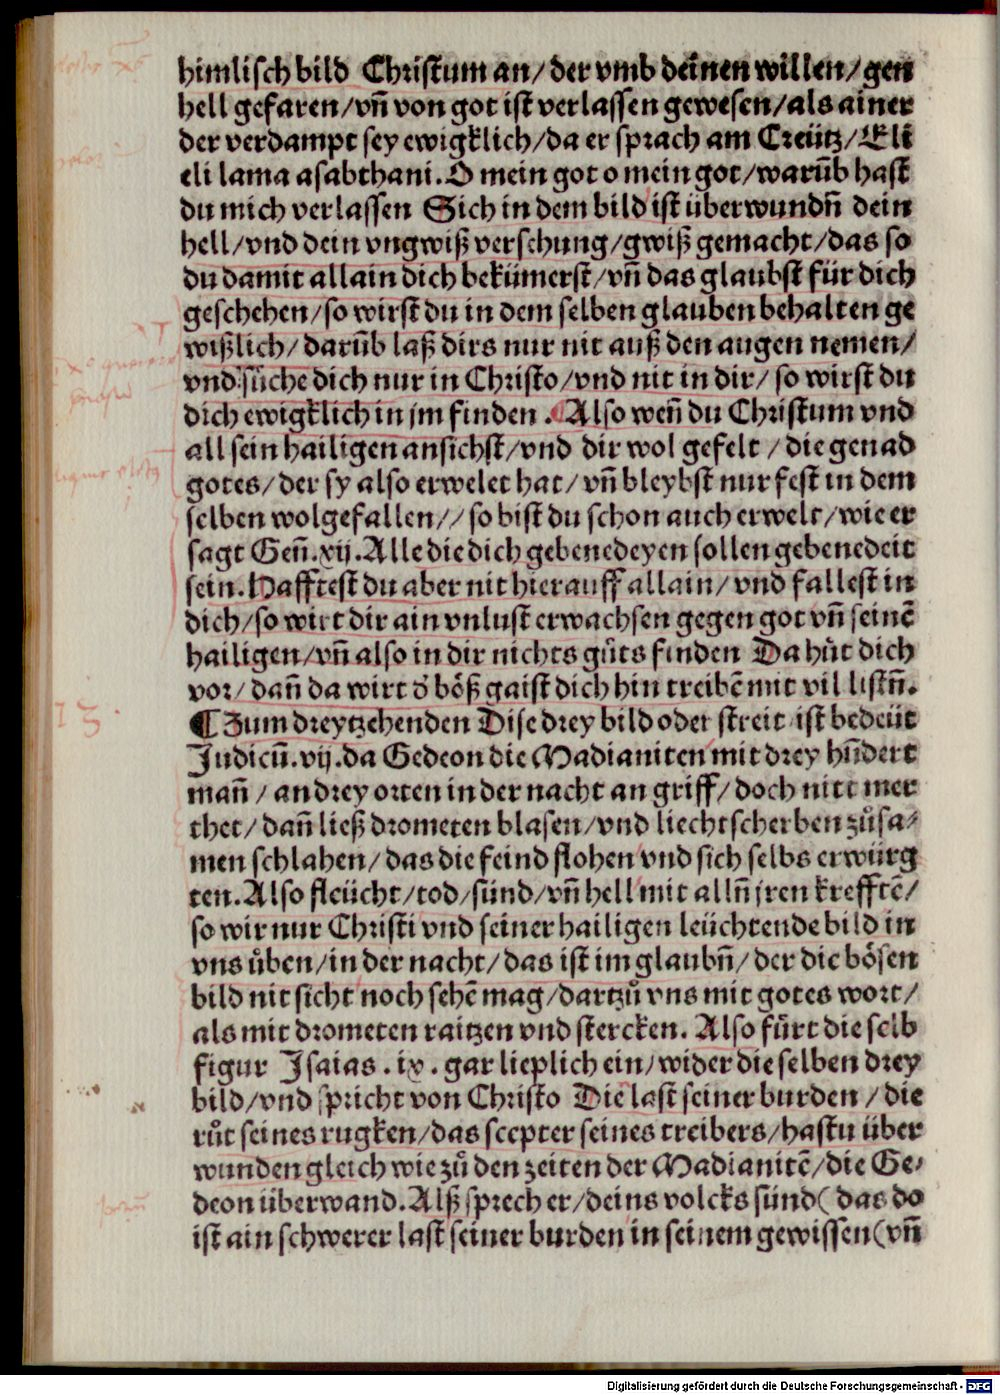 himlisch bild Christum an/ der vmb deinen willen/ gen
hell gefaren/ vn̄ von got ist verlassen gewesen/ als ainer
der verdampt sey ewigklich/ da er sprach am Creütz/ Eli
eli lama asabthani. O mein got o mein got/ warūb hast
du mich verlassen Sich in dem bild ist überwundn̄ dein
hell/ vnd dein vngwiß versehung/ gwiß gemacht/ das so
du damit allain dich bekümerst/ vn̄ das glaubst für dich
geschehen/ so wirst du in dem selben glauben behalten ge
wißlich/ darūb laß dirs nur nit auß den augen nemen/
vnd sůche dich nur in Christo/ vnd nit in dir/ so wirst du
dich ewigklich in jm finden. Also wen̄ du Christum vnd
all sein hailigen ansichst/ vnd dir wol gefelt / die genad
gotes/ der sy also erwelet hat/ vn̄ bleybst nur fest in dem
selben wolgefallen// so bist du schon auch erwelt/ wie er
sagt Gen̄. xij. Alle die dich gebenedeyen sollen gebenedeit
sein. Hafftest du aber nit hierauff allain/ vnd fallest in
dich/ so wirt dir ain vnlust erwachsen gegen got vn̄ seinē
hailigen/ vn̄ also in dir nichts gůts finden Da hůt dich
vor/ dan̄ da wirt d̄ böß gaist dich hin treibē mit vil listn̄.
¶ Zum dreytzehenden Dise drey bild oder streit ist bedeüt
Judicū. vij. da Gedeon die Madianiten mit drey hn̄dert
man̄ / an drey orten in der nacht an griff/ doch nitt mer
thet/ dan̄ ließ drometen blasen/ vnd liechtscherben zůsa⸗
men schlahen/ das die feind flohen vnd sich selbs erwürg
ten. Also fleücht/ tod/ sünd/ vn̄ hell mit alln̄ jren krefftē/
so wir nur Christi vnd seiner hailigen leüchtende bild in
vns ůben/ in der nacht/ das ist im glaubn̄/ der die bösen
bild nit sicht noch sehē mag/ dartzů vns mit gotes wort/
als mit drometen raitzen vnd stercken. Also fürt die selb
figur Isaias. ix. gar lieplich ein/ wider die selben drey
bild/ vnd spricht von Christo Die last seiner burden / die
růt seines rugken/ das scepter seines treibers/ hastu über
wunden gleich wie zů den zeiten der Madianitē/ die Ge⸗
deon überwand. Alß sprech er/ deins volcks sünd( das do
ist ain schwerer last seiner burden in seinem gewissen( vn̄
13.
Digitalisierung gefördert durch die Deutsche Forschungsgemeinschaft - DFG